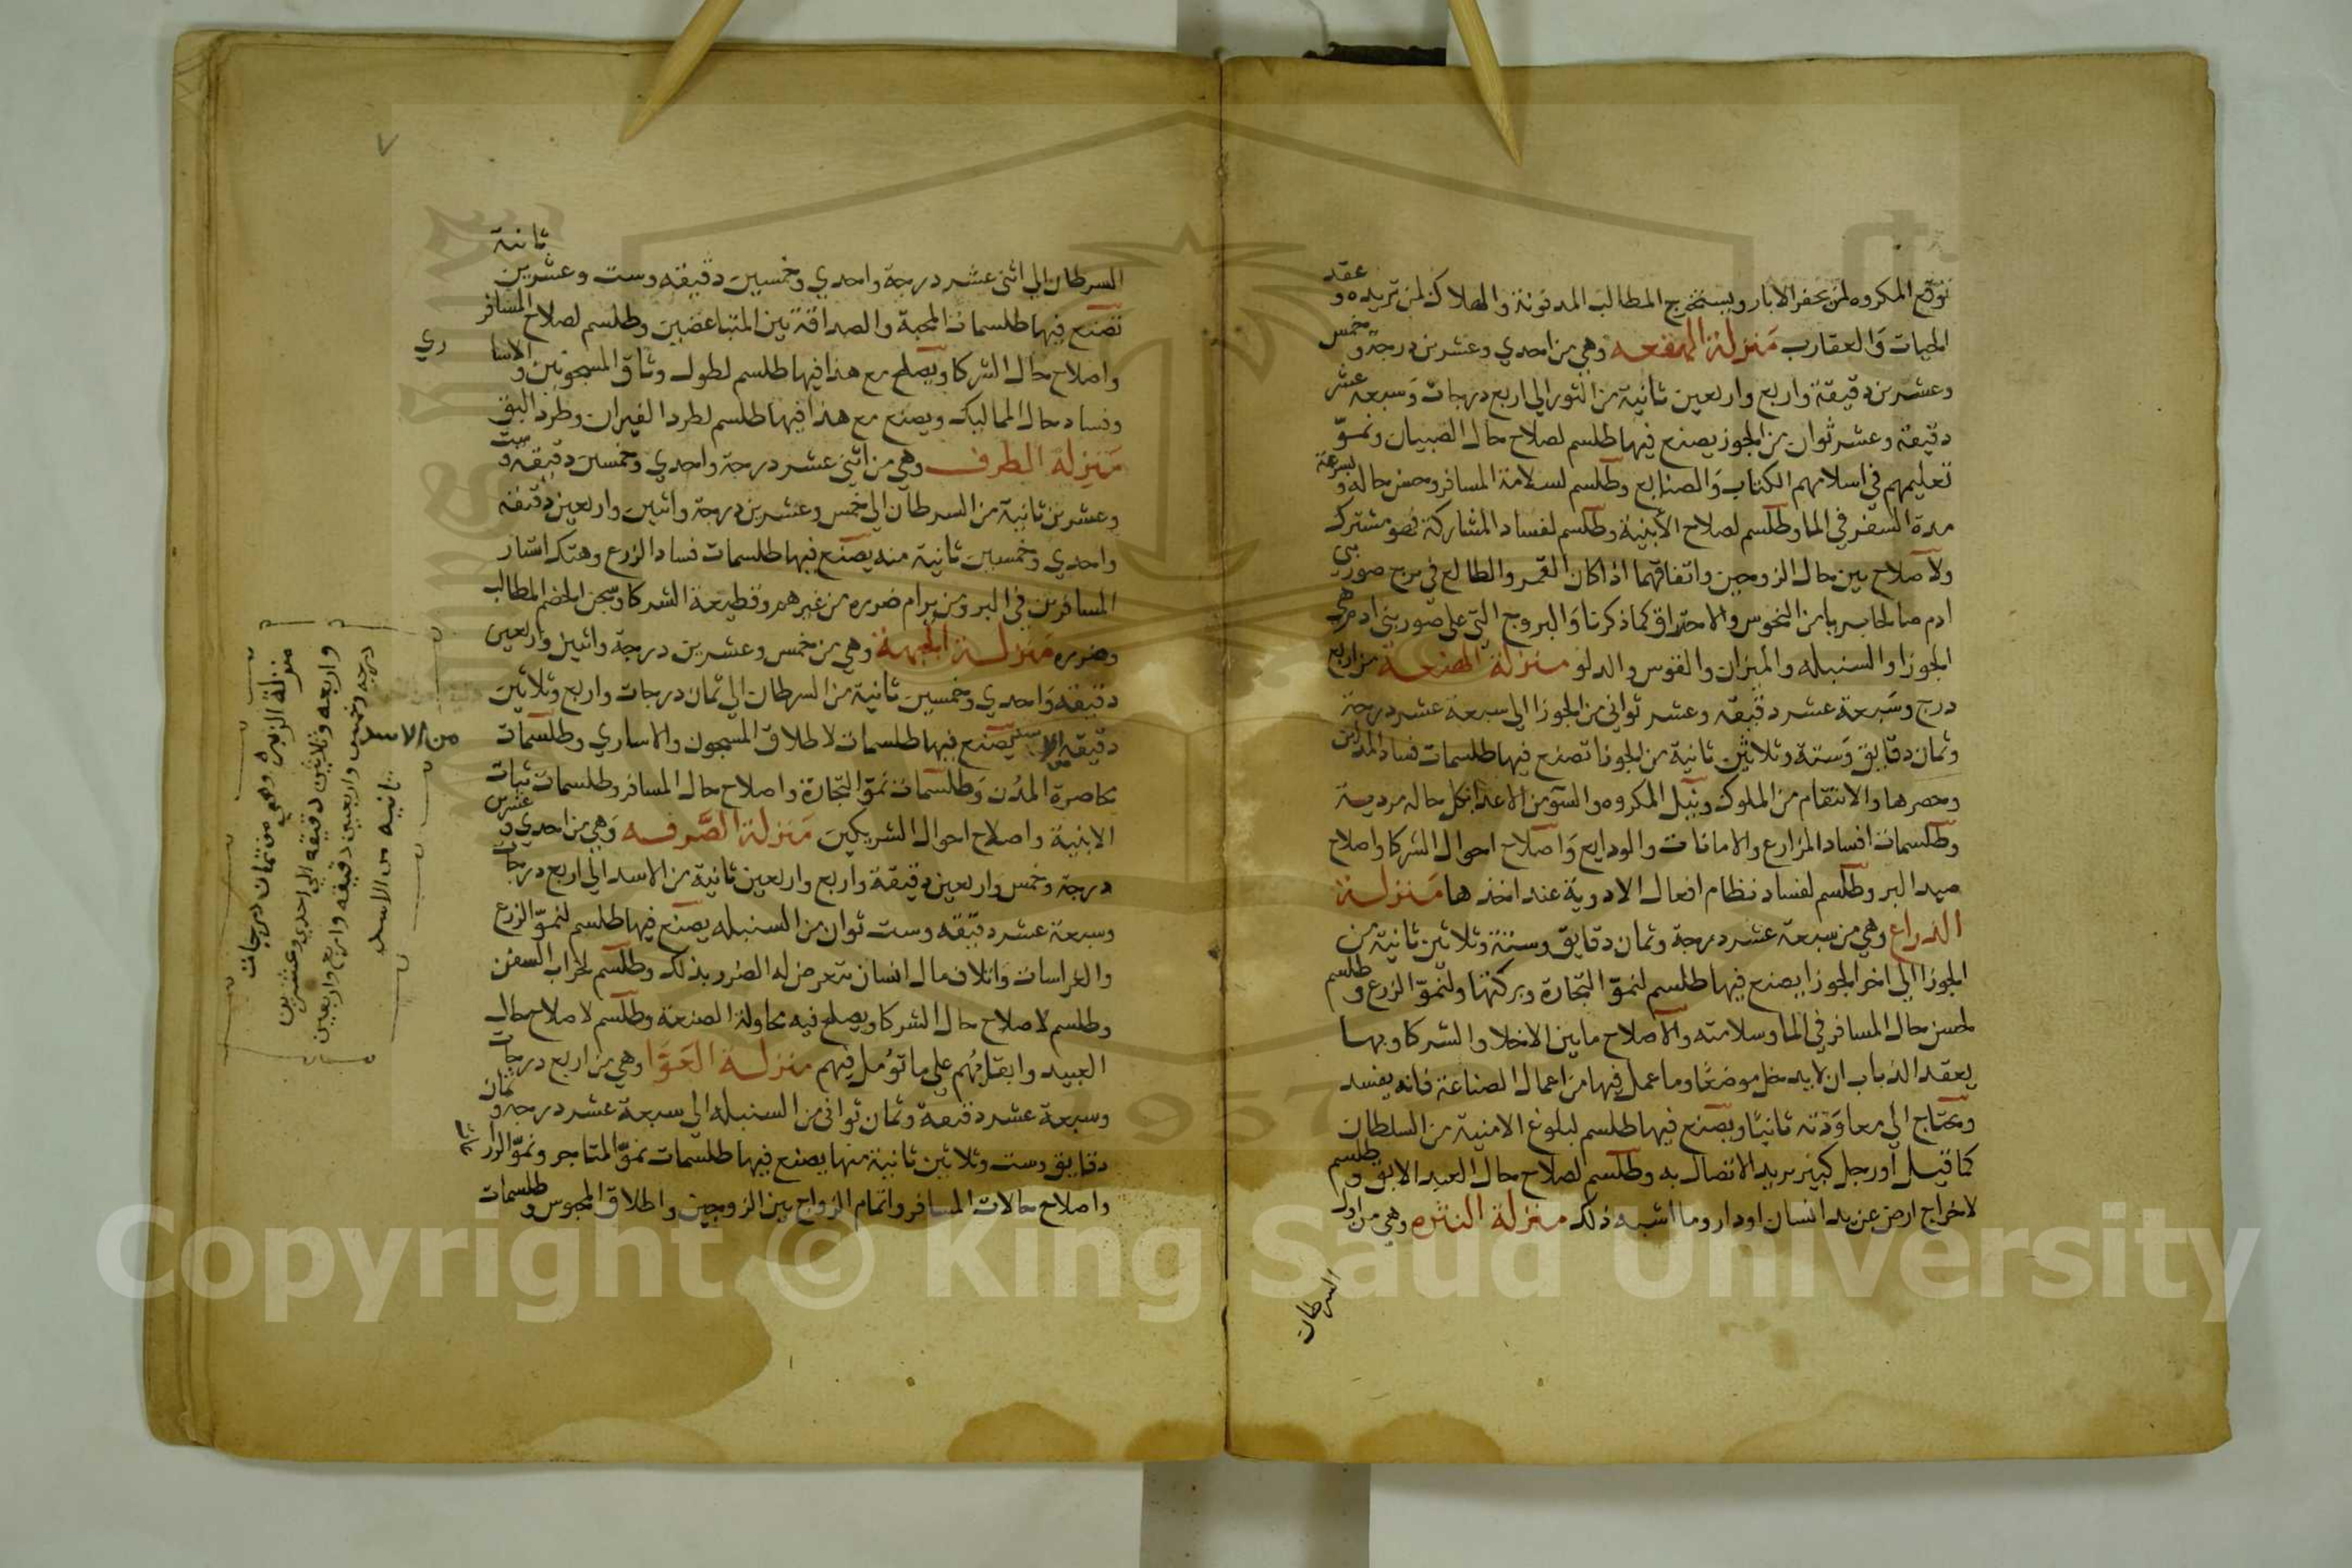 توقع المكروه لمن يحفر الابار ويستخرج المطالب المدفونة والهلاك لمن تريده وعقد
الحيات والعقارب منزلة الهقعه وهي من احدي وعشرين درجة وخمس
وعشرين دقيقة واربع واربعين ثانية من الثور الي اربع درجات وسبعه عشر
دقيقة وعشر ثوان من الجوز يصنع فيها طلسم لصلاح حال الصبيان ونموّ
تعليمهم في اسلامهم الكتاب والصنايع وطلسم لسلامة المسافر وحسن حاله وبسرعة
مدة السفر في الما وطلسم لصلاح الأبنية وطلسم لفساد المشاركة فهو مشترك
ولاصلاح بين حال الزوجين واتفاقهما اذا كان القمر والطالع في برج صور بني
ادم صالحا بريا من النحوس والاحتراق كما ذكرنا والبروج التي علي صور بني ادم هي
الجوزا والسنبله والميزان والقوس والدلو منزلة الهنعة من اربع
درج وسبعة عشر دقيقه وعشر ثواني من الجوزا الي سبعة عشر درجة
وثمان دقايق وستة وثلاثين ثانية من الجوزا تصنع فيها طلسمات فساد المداين
وحصرها والانتقام من الملوك ونيل المكروه والسوّ من الاعدا بكل حاله مردية
وطلسمات افساد المزارع والامانات والودايع واصلاح احوال الشركا واصلاح
صيد البر وطلسم لفساد نظام افعال الادوية عند اخذها منزلة
الذراع وهي من سبعة عشر درجة وثمان دقايق وستة وثلاثين ثانية من
الجوزا الي اخر الجوزا يصنع فيها طلسم لنموّ التجارة وبركتها ولنموّ الزرع وطلسم
لحسن حال المسافر في الما وسلامته والاصلاح ما بين الاخلا والشركا وبها
يعقد الذباب ان لا يدخل موضعًا وما عمل فيها من اعمال الصناعة فانه يفسد
ويحتاج الي معاودته ثانيًا ويصنع فيها طلسم لبلوغ الامنية من السلطان
كما قيل اورجل كبير يريد الاتصال به وطلسم لصلاح حال العبد الابق وطلسم
لاخراج ارض عن يد انسان او دار وما اشبه ذلك منزلة النثره وهي من اول
السرطان
٧
السرطان الي اثني عشر درجة واحدي وخمسين دقيقه وست وعشرين ثانية
تصنع فيها طلسمات المحبة والصداقة بين المتباغضين وطلسم لصلاح المسافر
واصلاح حال الشركا ويصلح مع هذا فيها طلسم لطول وثاق المسجونين والاساري
وفساد حال المماليك ويصنع مع هذا فيها طلسم لطرد الفيران وطرد البق
منزلة الطرف وهي من اثني عشر درجة واحدي وخمسين دقيقة وست
وعشرين ثانية من السرطان الي خمس وعشرين درجة واثنين واربعين دقيقه
واحدي وخمسين ثانية منه يصنع فيها طلسمات فساد الزرع وهتك استار
المسافرين في البر ومن يرام ضوره من غيرهم وقطيعة الشركا وسجن الخصم المطالب
وضوره منزلة الجبهة وهي من خمس وعشرين درجة واثنين واربعين
دقيقه واحدي وخمسين ثانية من السرطان الي ثمان درجات واربع وثلاثين
دقيقه من الاسد يصنع فيها طلسمات لاطلاق المسجون والاساري وطلسمات
محاصرة المدن وطلسمات نموّ التجارة واصلاح حال المسافر وطلسمات ثبات
الابنية واصلاح احوال الشريكين منزلة الصرفه وهي من احدي وعشرين
درجة وخمس واربعين دقيقة واربع واربعين ثانية من الاسد الي اربع درجات
وسبعة عشر دقيقه وست ثوان من السنبله يصنع فيها طلسم لنموّ الزرع
والغراسات واتلاف مال انسان تتعرض له الضرر بذلك وطلسم لخراب السفن
وطلسم لاصلاح حال الشركا ويصلح فيه محاولة الصنعة وطلسم لاصلاح حال
العبيد وابقائهم علي ما تؤمل فيهم منزلة العوّا وهي من اربع درجات
وسبعة عشر دقيقة وثمان ثواني من السنبله الي سبعة عشر درجه وثمان
دقايق وست وثلاثين ثانية منها يصنع فيها طلسمات نموّ المتاجر ونموّ الزرايع
واصلاح حالات المسافر واتمام الزواج بين الزوجين واطلاق المحبوس وطلسمات
منزلة الزبره وهي من ثمان درجات
واربعه وثلاثين دقيقه الي احدي وعشرين
درجه وخمس واربعين دقيقه واربع واربعين
ثانيه من الاسد
من الاسد